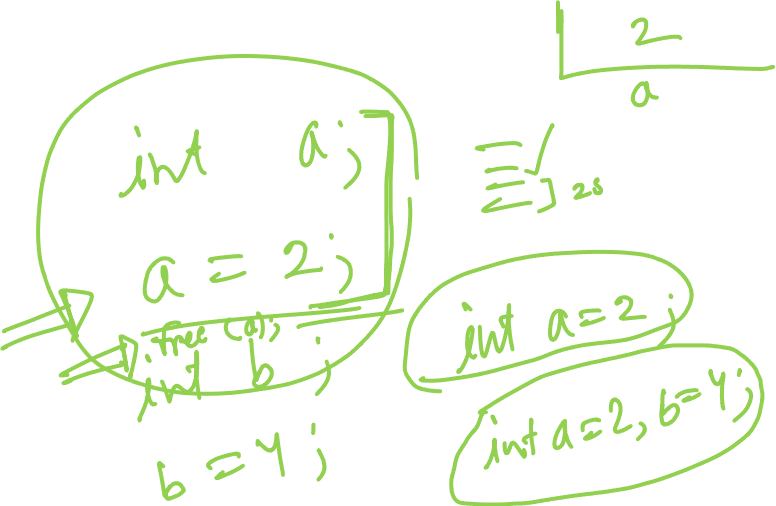 int a;
a = 2;
free (a);
int b ;
b = 4;
2
a
2s
int a = 2 ;
int a = 2, b = 4;